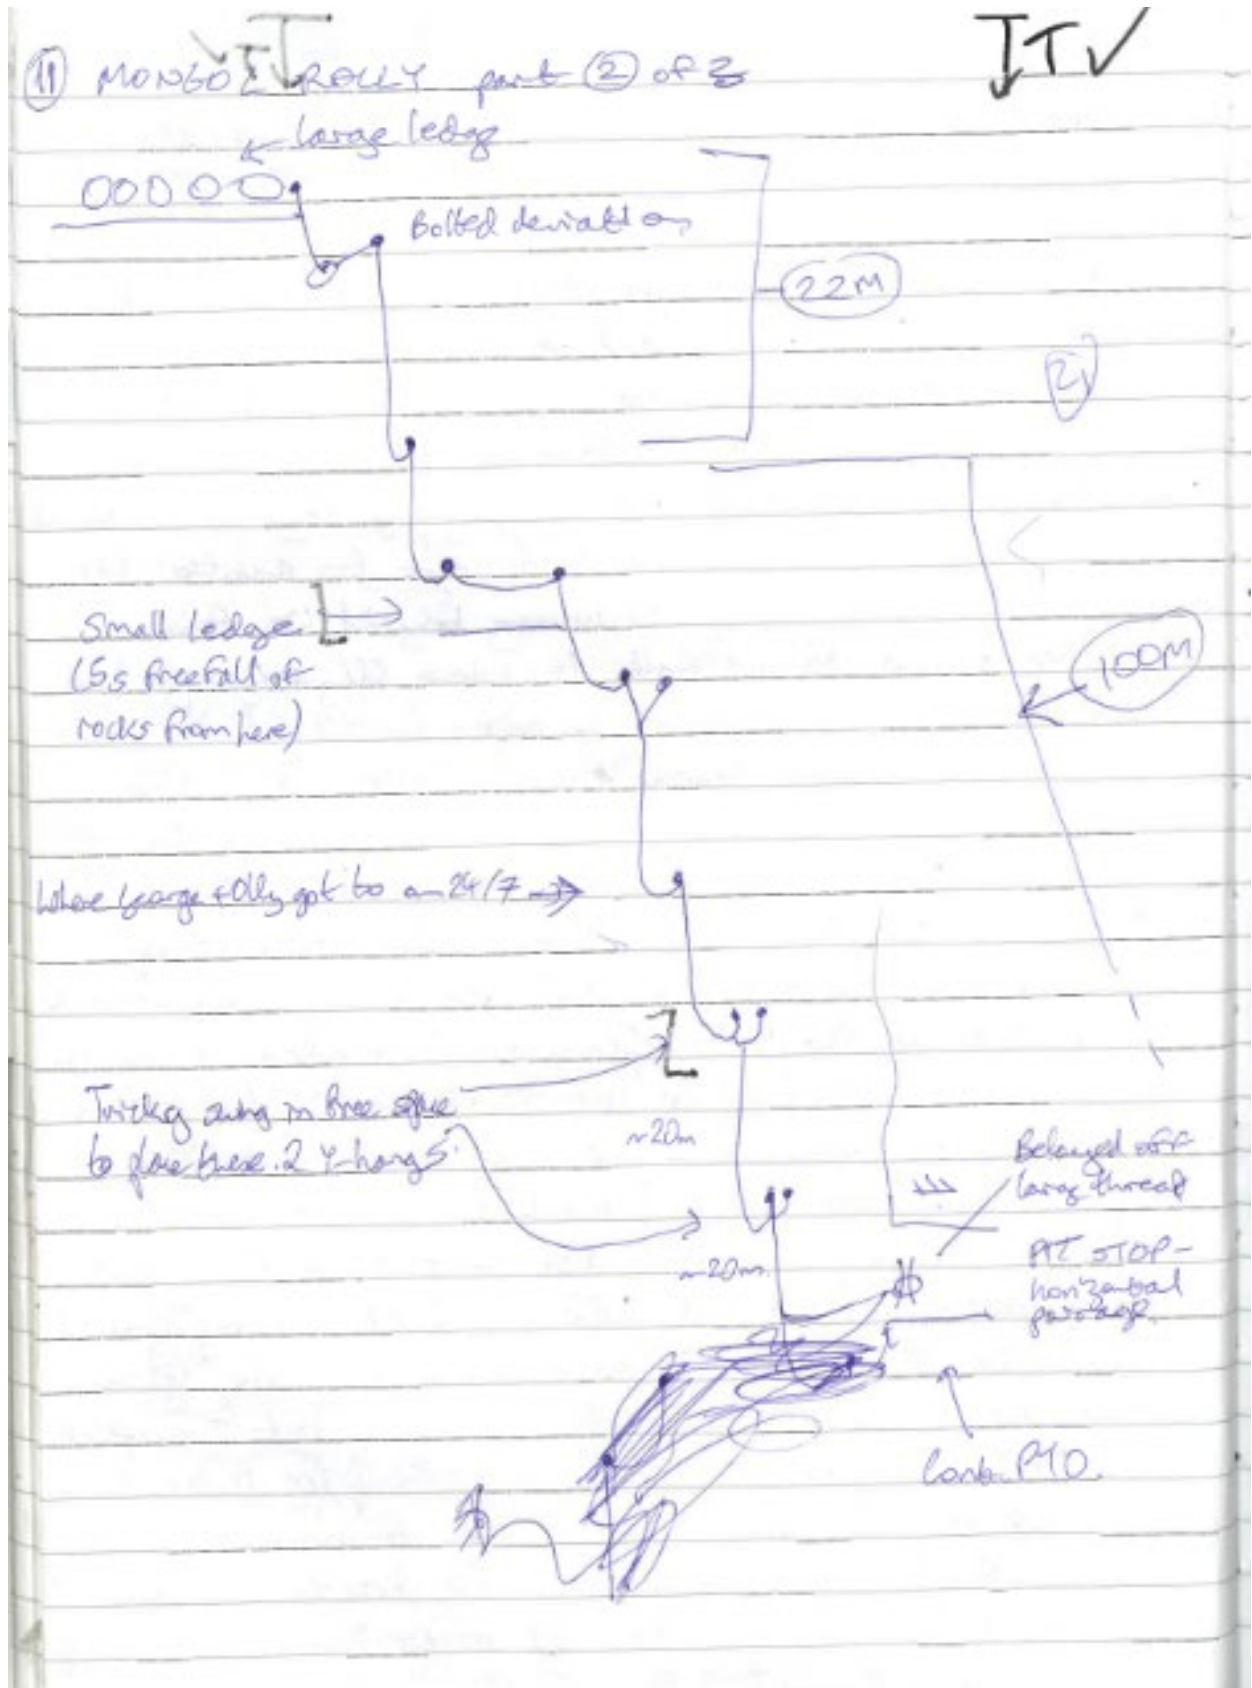 JT JT✓
11 MONGOL RALLY part 2 of 3
large ledge
Bolted deviation
22M
2
Small ledge
(5s freefall of
rocks from here)
100M
Where George + Olly got to on 24/7
Tricky swing in free space
to place these 2 Y-hangs.
~20m
Belayed off
large thread
~20m.
PIT STOP -
horizontal
passage.
Contd. PTO.